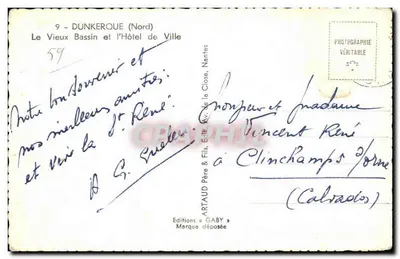 9 - DUNKERQUE (Nord)
Le Vieux Bassin et l'Hôtel de Ville
59
Notre bon souvenir et
nos meilleures amitiés.
et vive la St René.
A G.
PHOTOGRAPHIE
VÉRITABLE
Monsieur et Madame
Vincent René
à Clinchamps s/orne
(Calvados)
ARTAUD Père & Fils, Edit. de la Close, Nantes
Editions « GABY »
Marque déposée